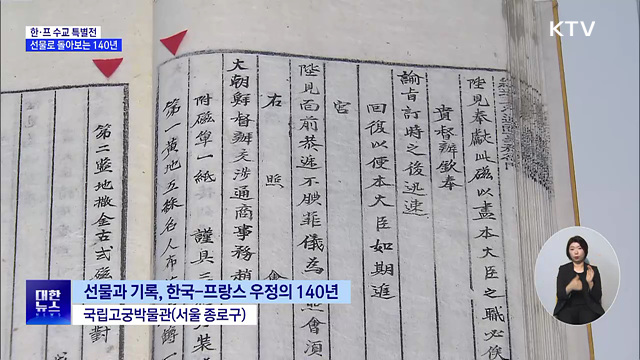 한·프 수교 특별전
선물로 돌아보는 140년
KTV
陛見奉獻此磁以盡本大臣之職必俟
貴督辦欽奉
諭旨訂時之後迅速
回復以便本大臣如期進
宮
陛見面前恭進不腆菲儀為 會須
右 照 會
大朝鮮督辦交涉通商事務趙
附磁單一紙 謹具三
第一黃地五綵名人 裝
第二藍地撒金古式磁
대한뉴스
선물과 기록, 한국-프랑스 우정의 140년
국립고궁박물관(서울 종로구)